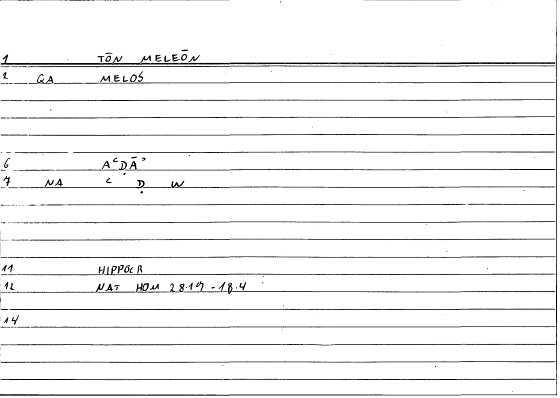 1 TŌN MELEŌN
2 QA MELOS
6 AʿḌĀʾ
7 NA ʿ Ḍ W
11 HIPPOCR
12 NAT HOM 28.17 - 18.4
14